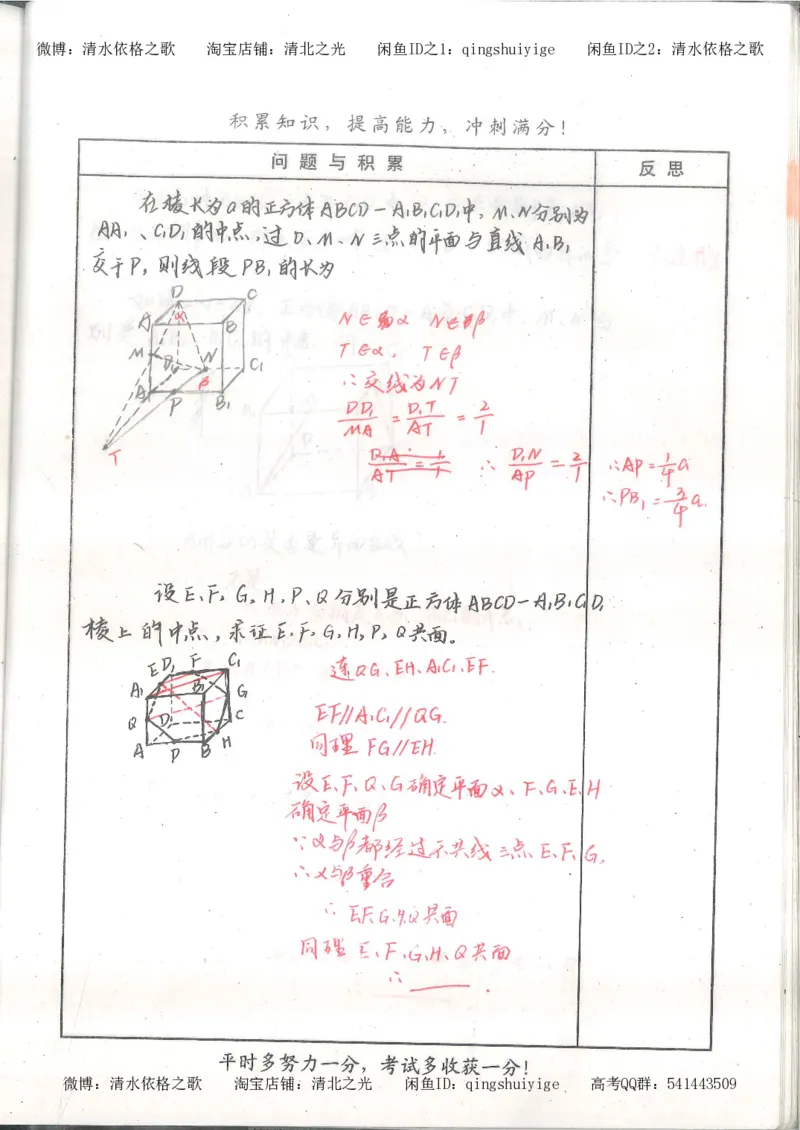 微博：清水依格之歌 淘宝店铺：清北之光 闲鱼ID之1：qingshuiyige 闲鱼ID之2：清水依格之歌
积累知识，提高能力，冲刺满分！
问题与积累 反思
在棱长为a的正方体ABCD-A₁B₁C₁D₁中，M、N分别为
AA₁、C₁D₁的中点，过D、M、N三点的平面与直线A₁B₁
交于P，则线段PB₁的长为
D C
A α B
M D₁ N C₁
A₁ P β B₁
T
N∈α N∈β
T∈α， T∈β
∴交线为NT
DD₁/MA = D₁T/AT = 2/1
∴ D₁N/AP = 2/1 ∴AP=1/4a
∴PB₁=3/4a.
设E、F、G、H、P、Q分别是正方体ABCD-A₁B₁C₁D₁
棱上的中点，求证E、F、G、H、P、Q共面。
E D₁ F C₁
A₁ B₁ G
Q D C
A P B H
连QG、EH、A₁C₁、EF.
EF//A₁C₁//QG.
同理 FG//EH.
设E、F、Q、G确定平面α、F、G、E、H
确定平面β
∵α与β都经过不共线三点E、F、G，
∴α与β重合
∴ E.F.G.H.Q共面
同理 E、F、G、H、Q共面
∴ ______ .
平时多努力一分，考试多收获一分！
微博：清水依格之歌 淘宝店铺：清北之光 闲鱼ID：qingshuiyige 高考QQ群：541443509